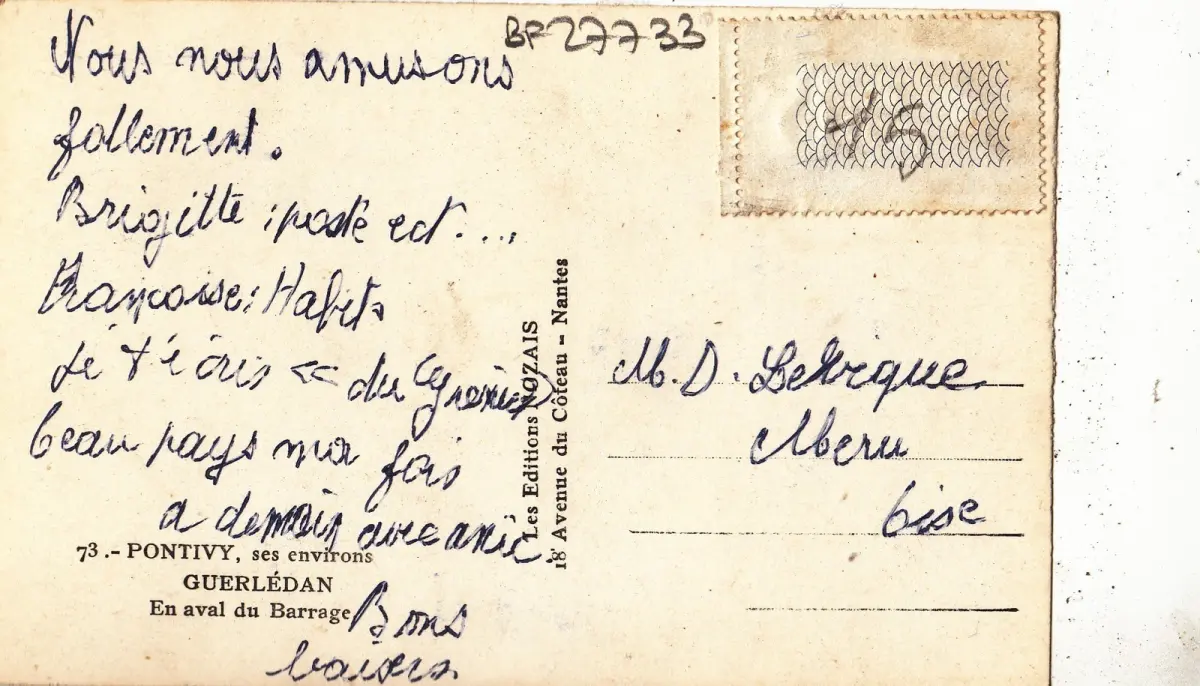 Nous nous amusons
follement.
Brigitte : poste ect....
Françoise: Habite
Je t'écris « du Grenier »
beau pays ma fois
a demain
Bons
baisers.
73.- PONTIVY, ses environs
GUERLÉDAN
En aval du Barrage
Les Editions NOZAIS
18 Avenue du Côteau - Nantes
BF27733
M. D.
Meru
Oise